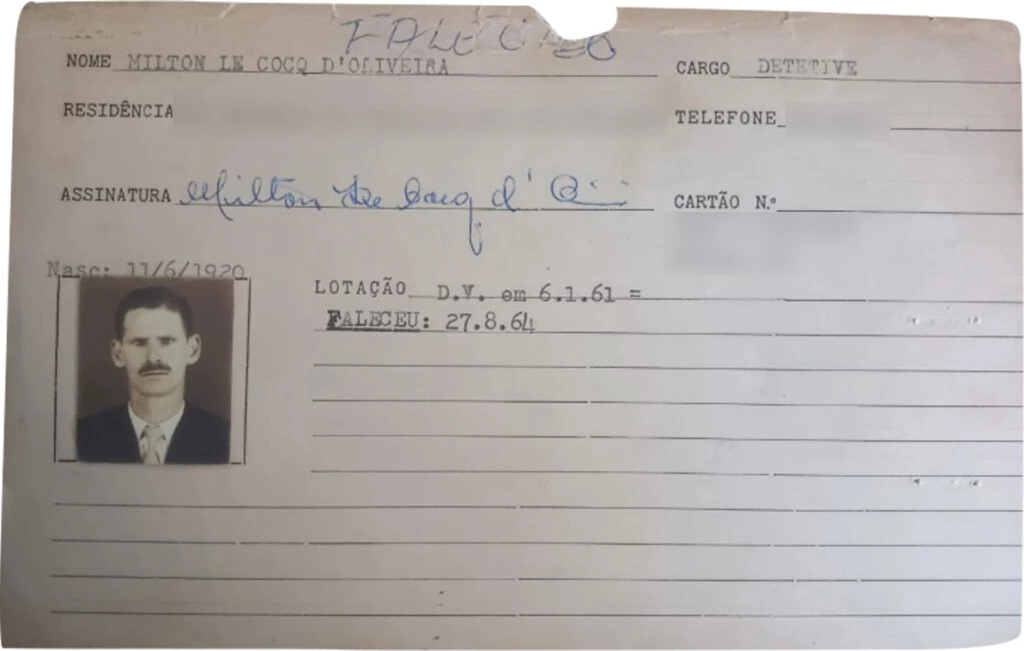 FALECIDO
NOME MILTON LE COCQ D'OLIVEIRA CARGO DETETIVE
RESIDÊNCIA TELEFONE
ASSINATURA Milton Le Cocq d'
CARTÃO N.º
Nasc: 11/6/1920
LOTAÇÃO D.V. em 6.1.61 =
FALECEU: 27.8.64